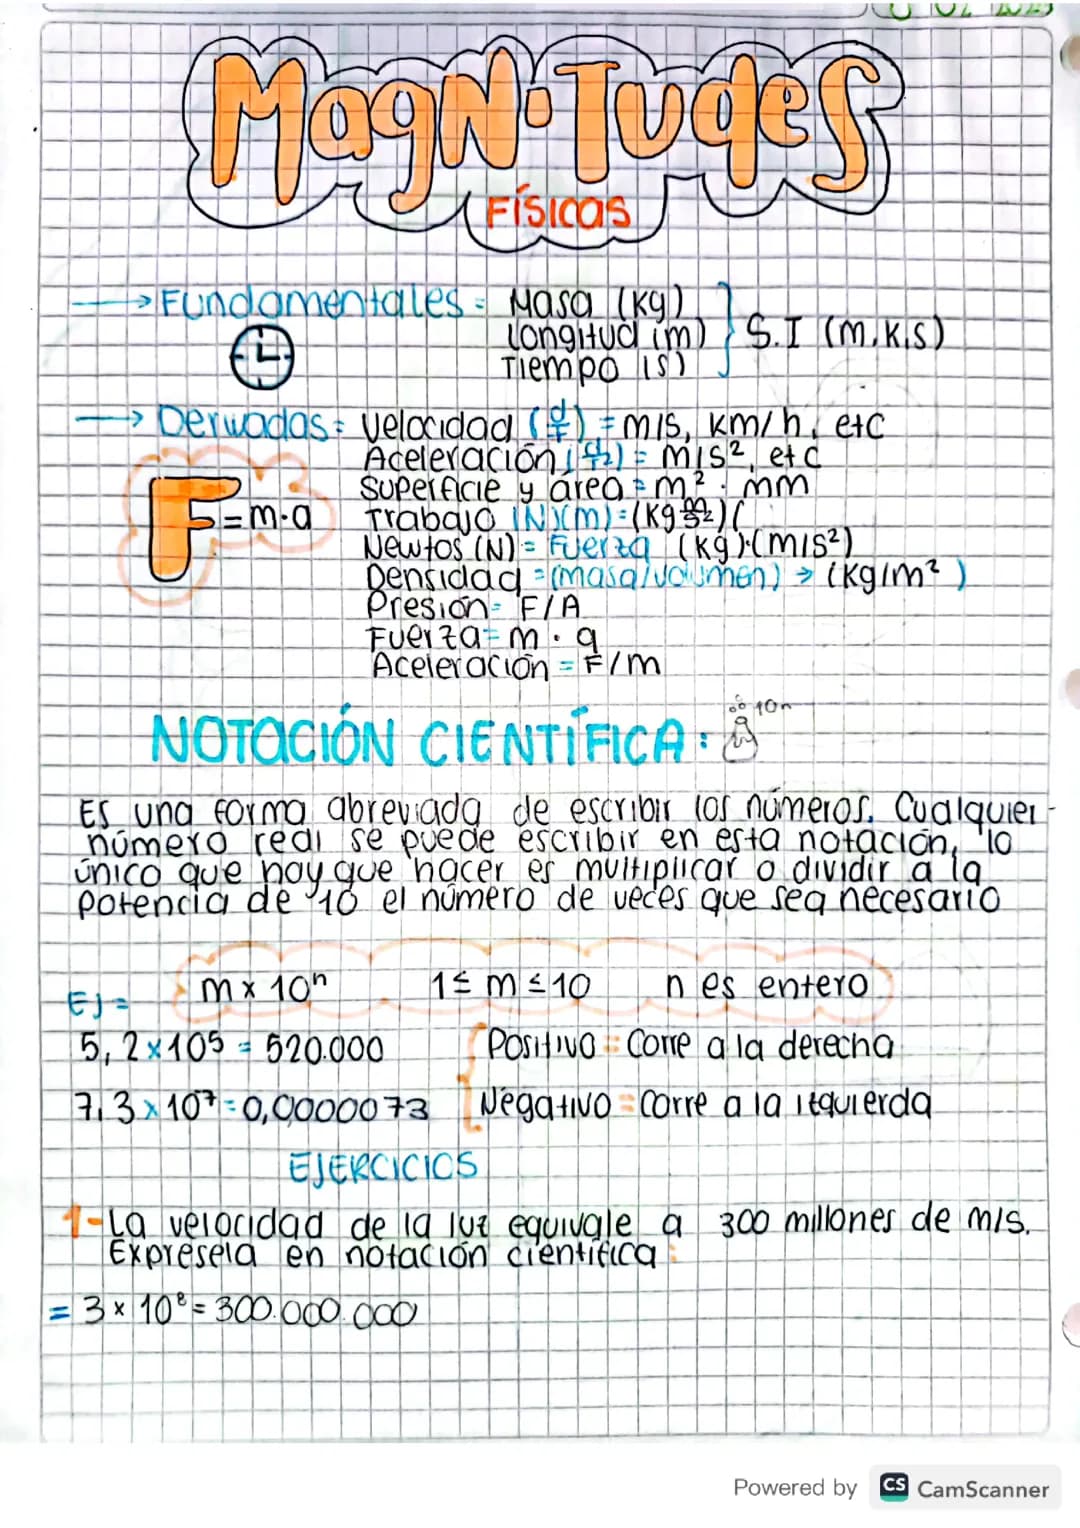 MagNiTudes
FÍSICas
→ Fundamentales = Masa (Kg)
Longitud (m)
Tiempo (s)
S.I (m.K.s)
→ Derivadas = Velocidad (d/t) = m/s, Km/h, etc
Aceleración (d/t2) = m/s², etc
Superficie y área = m² · mm
F=m·a
Trabajo (N)(m)=(Kg m/s2)(
Newtos (N) = Fuerza (Kg)·(m/s²)
Densidad = (masa/volumen) → (Kg/m²)
Presión= F/A
Fuerza= m · a
Aceleración = F/m
NOTaCIÓN CIENTÍFICA:
10n
Es una forma abreviada de escribir los números. Cualquier
número real se puede escribir en esta notación, lo
único que hay que hacer es multiplicar o dividir a la
potencia de 10 el número de veces que sea necesario
m x 10ⁿ 1 ≤ m ≤ 10 n es entero
Ej =
5,2 x 10⁵ = 520.000 Positivo = Corre a la derecha
7,3 x 10⁷ = 0,0000073 Negativo = Corre a la izquierda
EJERCICIOS
1-La velocidad de la luz equivale a 300 millones de m/s.
Expresela en notación científica:
= 3 x 10⁸ = 300.000.000
Powered by CS CamScanner